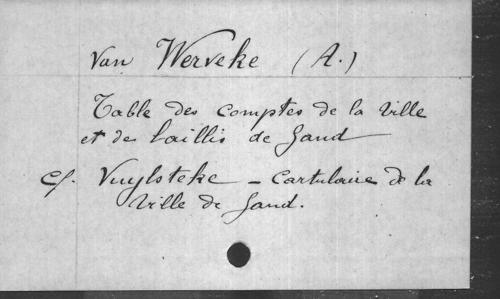 Van Werveke (A.)
Table des comptes de la Ville
et des baillis de Gand
Cf. Vuylsteke - Cartulaire de la
Ville de Gand.